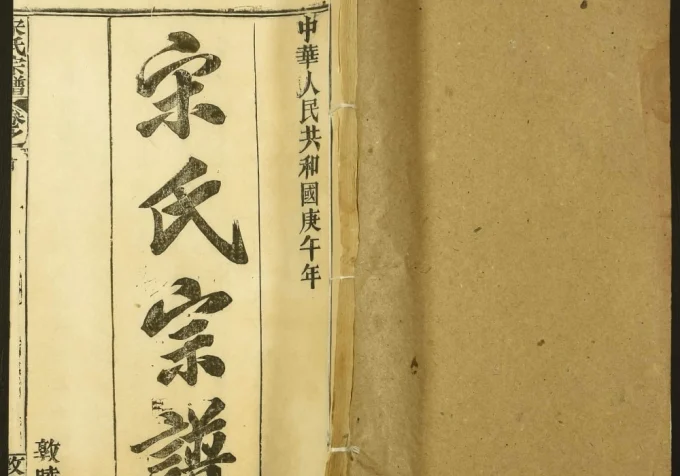 中華人民共和國庚午年
宋氏宗譜
敦睦
宋氏宗譜 卷之首